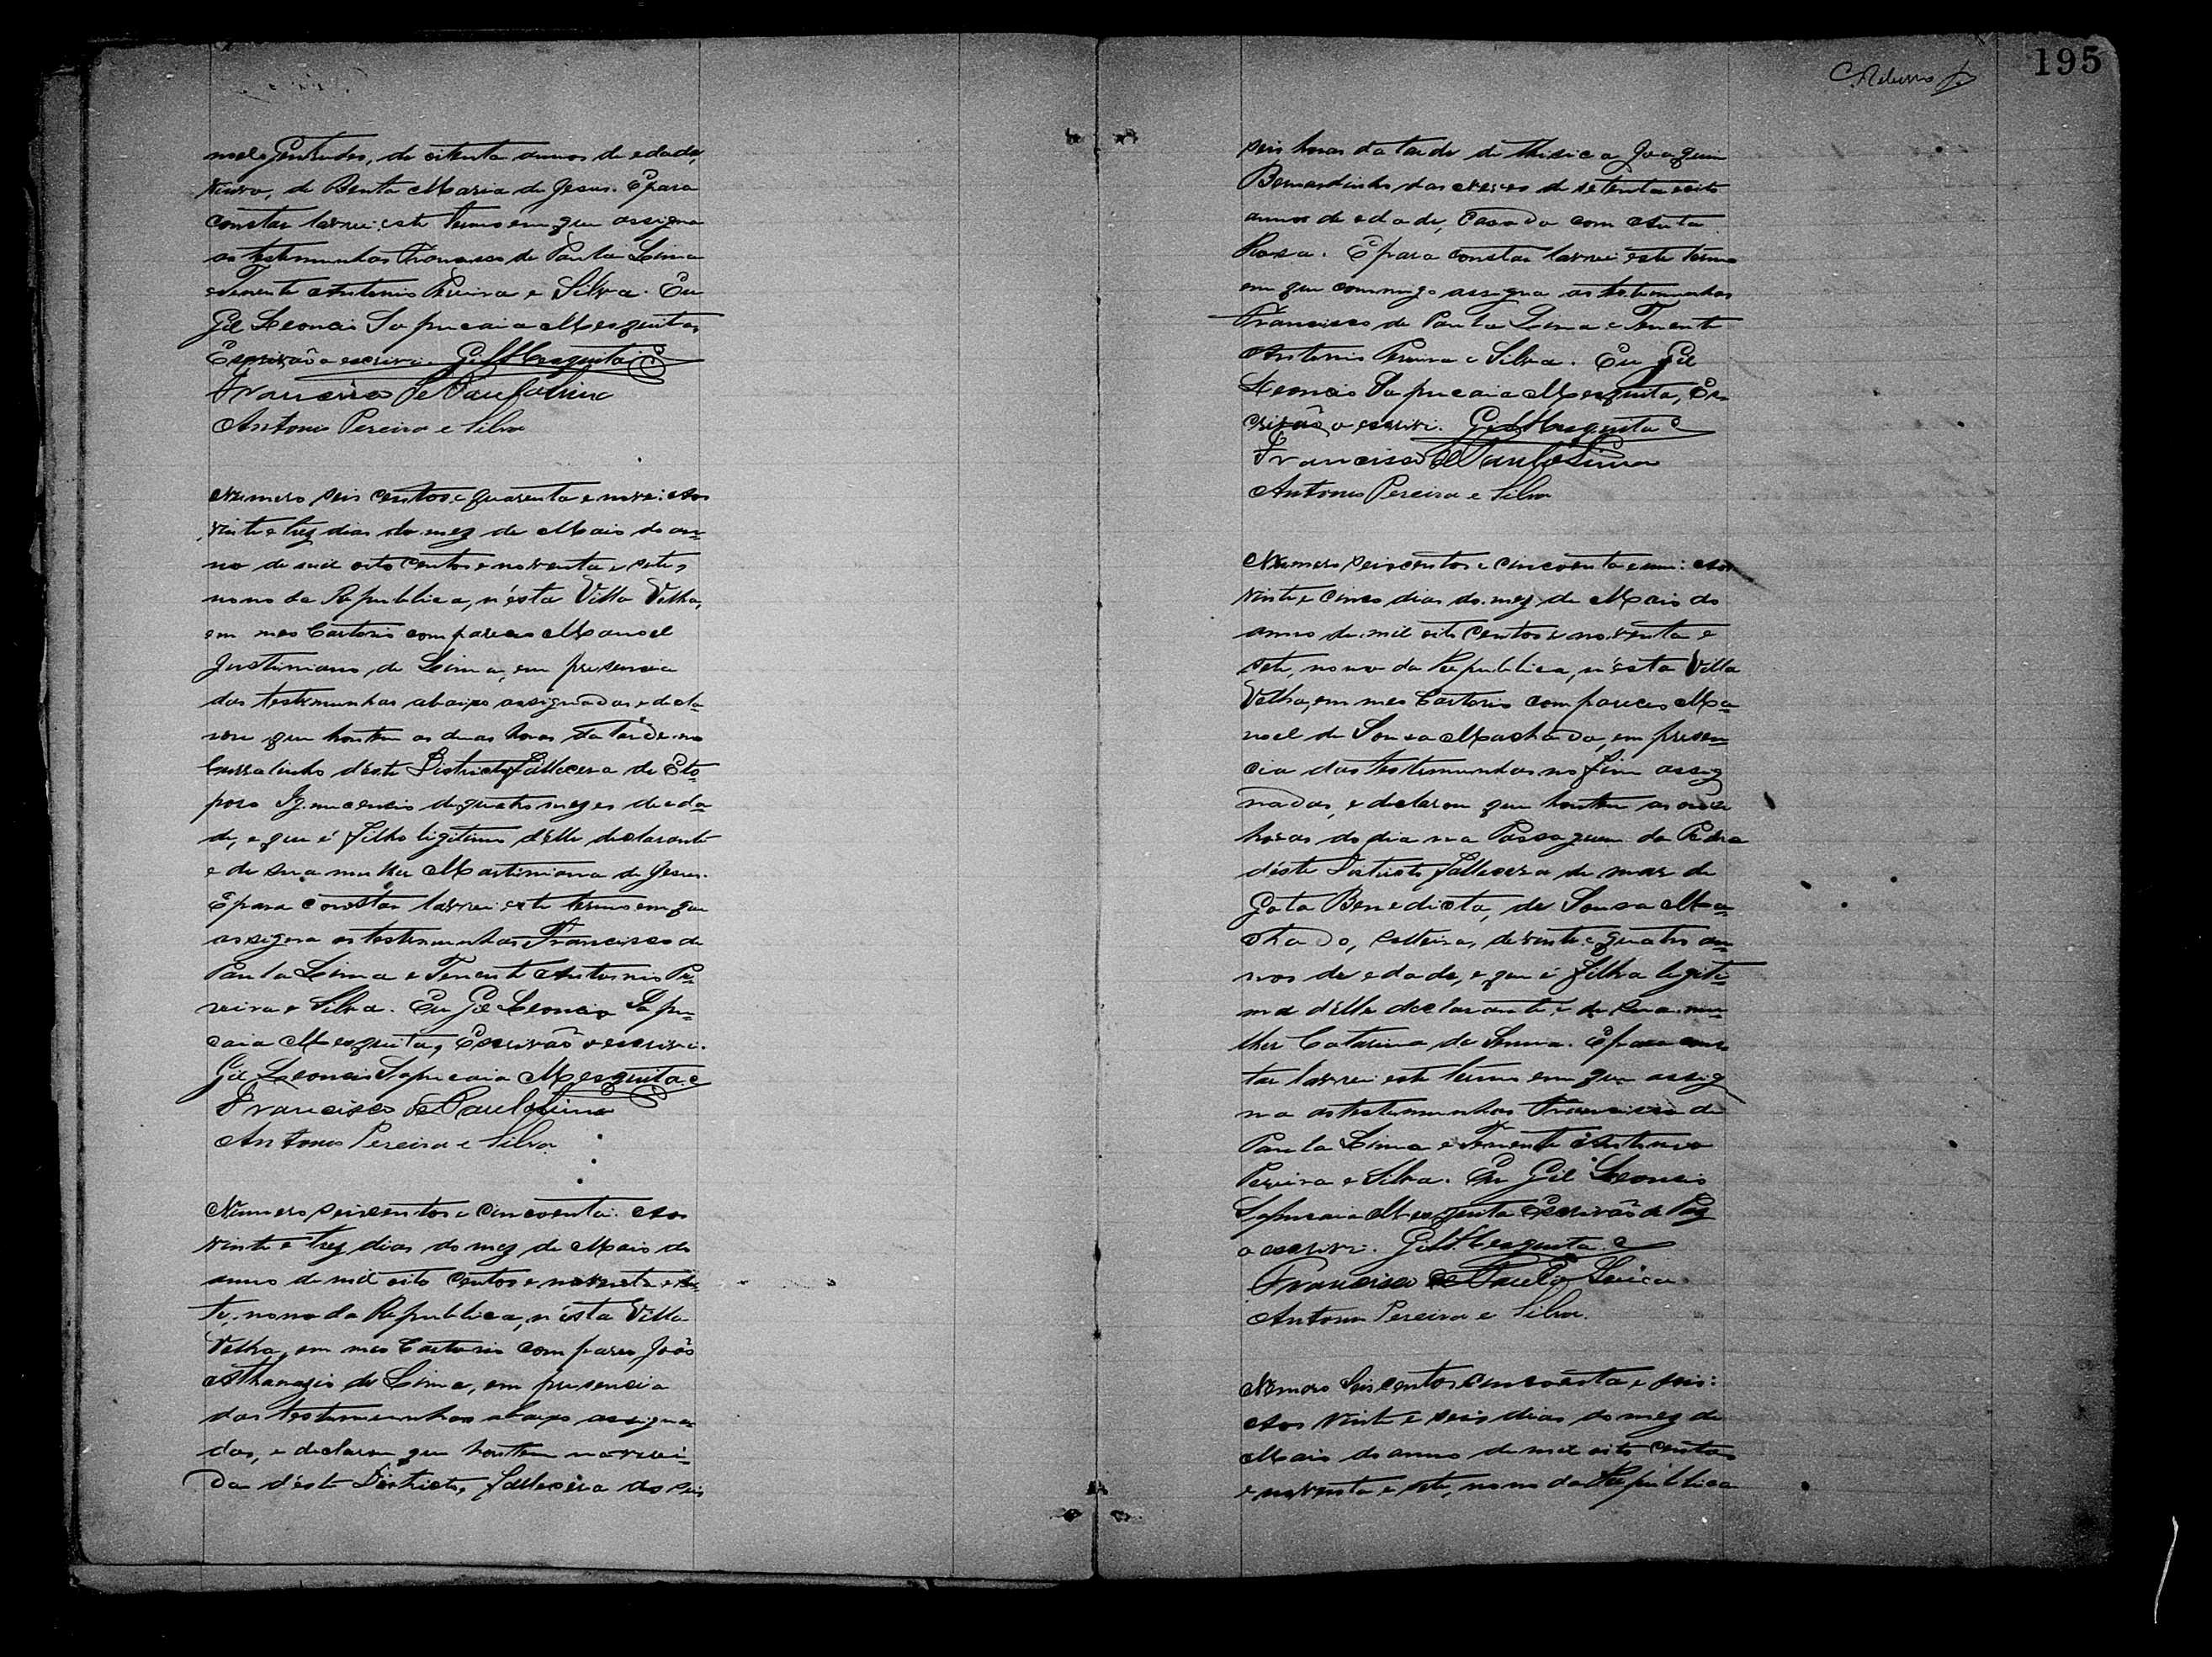 noel Gertrudes, de oitenta annos de edade,
viuvo, de Benta Maria de Jesus. E para
constar lavrei este termo em que assigna
as testemunhas Francisco de Paula Lima
e Tenente Antonio Pereira e Silva. Eu
Gil Leoncio Sapucaia Mesquita,
Escrivão o escrivi. Gil Mesquita
Francisco de Paula Lima
Antonio Pereira e Silva
Numero seis centos e quarenta e nove: Aos
vinte e trez dias do mez de Maio do an-
no de mil oito centos e noventa e sete,
nono da Republica, n'ésta Villa Velha,
em meo Cartorio compareceo Manoel
Justiniano de Lima, em presencia
das testemunhas abaixo assignadas e decla-
rou que hontem as duas horas da tarde no
Curralinho d'éste Districto fallecera de
de quatro mezes de eda-
de, e que é filho legitimo d'élle declarante
e de sua mulher Martiniana de Jesus.
E para constar lavrei este termo em que
assigna as testemunhas Francisco de
Paula Lima e Tenente Antonio Pe-
reira e Silva. Eu Gil Leoncio Sapu-
caia Mesquita, Escrivão o escrivi.
Gil Leoncio Sapucaia Mesquita
Francisco de Paula Lima
Antonio Pereira e Silva
Numero seiscentos e cincoenta: Aos
vinte e trez dias do mez de Maio do
anno de mil oito centos e noventa e se-
te, nono da Republica, n'ésta Villa
Velha, em meo Cartorio compareceo João
Athanazio de Lima, em presencia
das testemunhas abaixo assigna-
das, e declarou que hontem na
d'éste Districto, fallecera as seis
195
seis horas da tarde de thisica Joaquim
Bernardinho das Neves de setenta e oito
annos de edade, Casado com Anta
Rosa. E para constar lavrei este termo
em que commigo assigna as testemunhas
Francisco de Paula Lima e Tenente
Antonio Pereira e Silva. Eu Gil
Leoncio Sapucaia Mesquita, Es-
crivão o escrivi. Gil Mesquita
Francisco de Paula Lima
Antonio Pereira e Silva
Numero seiscentos e cincoenta e um: Aos
vinte e cinco dias do mez de Maio do
anno de mil oito centos e noventa e
sete, nono da Republica, n'ésta Villa
Velha, em meo Cartorio compareceo Ma-
noel de Sousa Machado, em presen-
cia das testemunhas no fim assig
nadas, e declarou que hontem as onze
horas do dia na Passagem da Pedra
d'éste Districto fallecera de mar de
Gota Benedicta, de Sousa Ma-
chado, solteira, de vinte e quatro an-
nos de edade, e que é filha legiti-
ma d'élle declarante e de sua mu-
lher Catarina de Senna. E para cons-
tar lavrei este termo em que assig
na as testemunhas Francisco de
Paula Lima e Tenente Antonio
Pereira e Silva. Eu Gil Leoncio
Sapucaia Mesquita Escrivão de Paz
o escrivi. Gil Mesquita
Francisco de Paula Lima
Antonio Pereira e Silva.
Numero Seiscentos cincoenta e dois:
Aos vinte e seis dias do mez de
Maio do anno de mil oito centos
e noventa e sete, nono da Republica